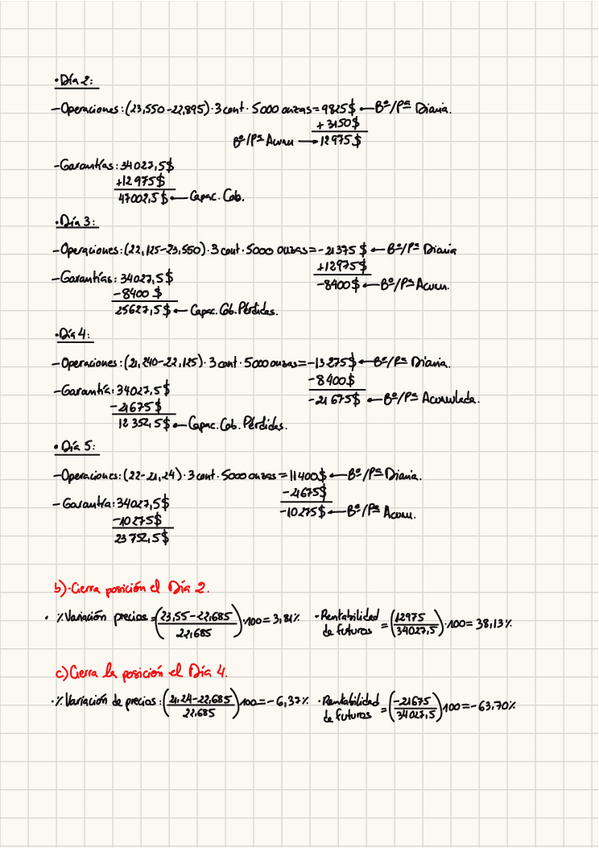 • Día 2:
- Operaciones: (23,550-22,895)·3 cont·5000 onzas = 9825$ ← Bº/Pª Diaria.
+ 3150$
Bº/Pª Acum → 12975$
- Garantías: 34027,5$
+12975$
47002,5$ ← Capac. Cob.
• Día 3:
- Operaciones: (22,125-23,550)·3 cont·5000 onzas = -21375$ ← Bº/Pª Diaria
+12975$
- Garantías: 34027,5$
-8400$ ← Bº/Pª Acum.
-8400$
25627,5$ ← Capac. Cob. Pérdidas.
• Día 4:
- Operaciones: (21,240-22,125)·3 cont·5000 onzas = -13275$ ← Bº/Pª Diaria.
-8400$
- Garantía: 34027,5$
-21675$ ← Bº/Pª Acumulada.
-21675$
12352,5$ ← Capac. Cob. Pérdidas.
• Día 5:
- Operaciones: (22-21,24)·3 cont·5000 onzas = 11400$ ← Bº/Pª Diaria.
-21675$
- Garantía: 34027,5$
-10275$ ← Bº/Pª Acum.
-10275$
23752,5$
b)· Cierra posición el Día 2.
· % Variación precios = (23,55-22,685 / 22,685)·100 = 3,81% · Rentabilidad de futuros = (12975 / 34027,5)·100 = 38,13%
c) Cierra la posición el Día 4.
· % Variación de precios: (21,24-22,685 / 22,685)·100 = -6,37% · Rentabilidad de futuros = (-21675 / 34027,5)·100 = -63,70%